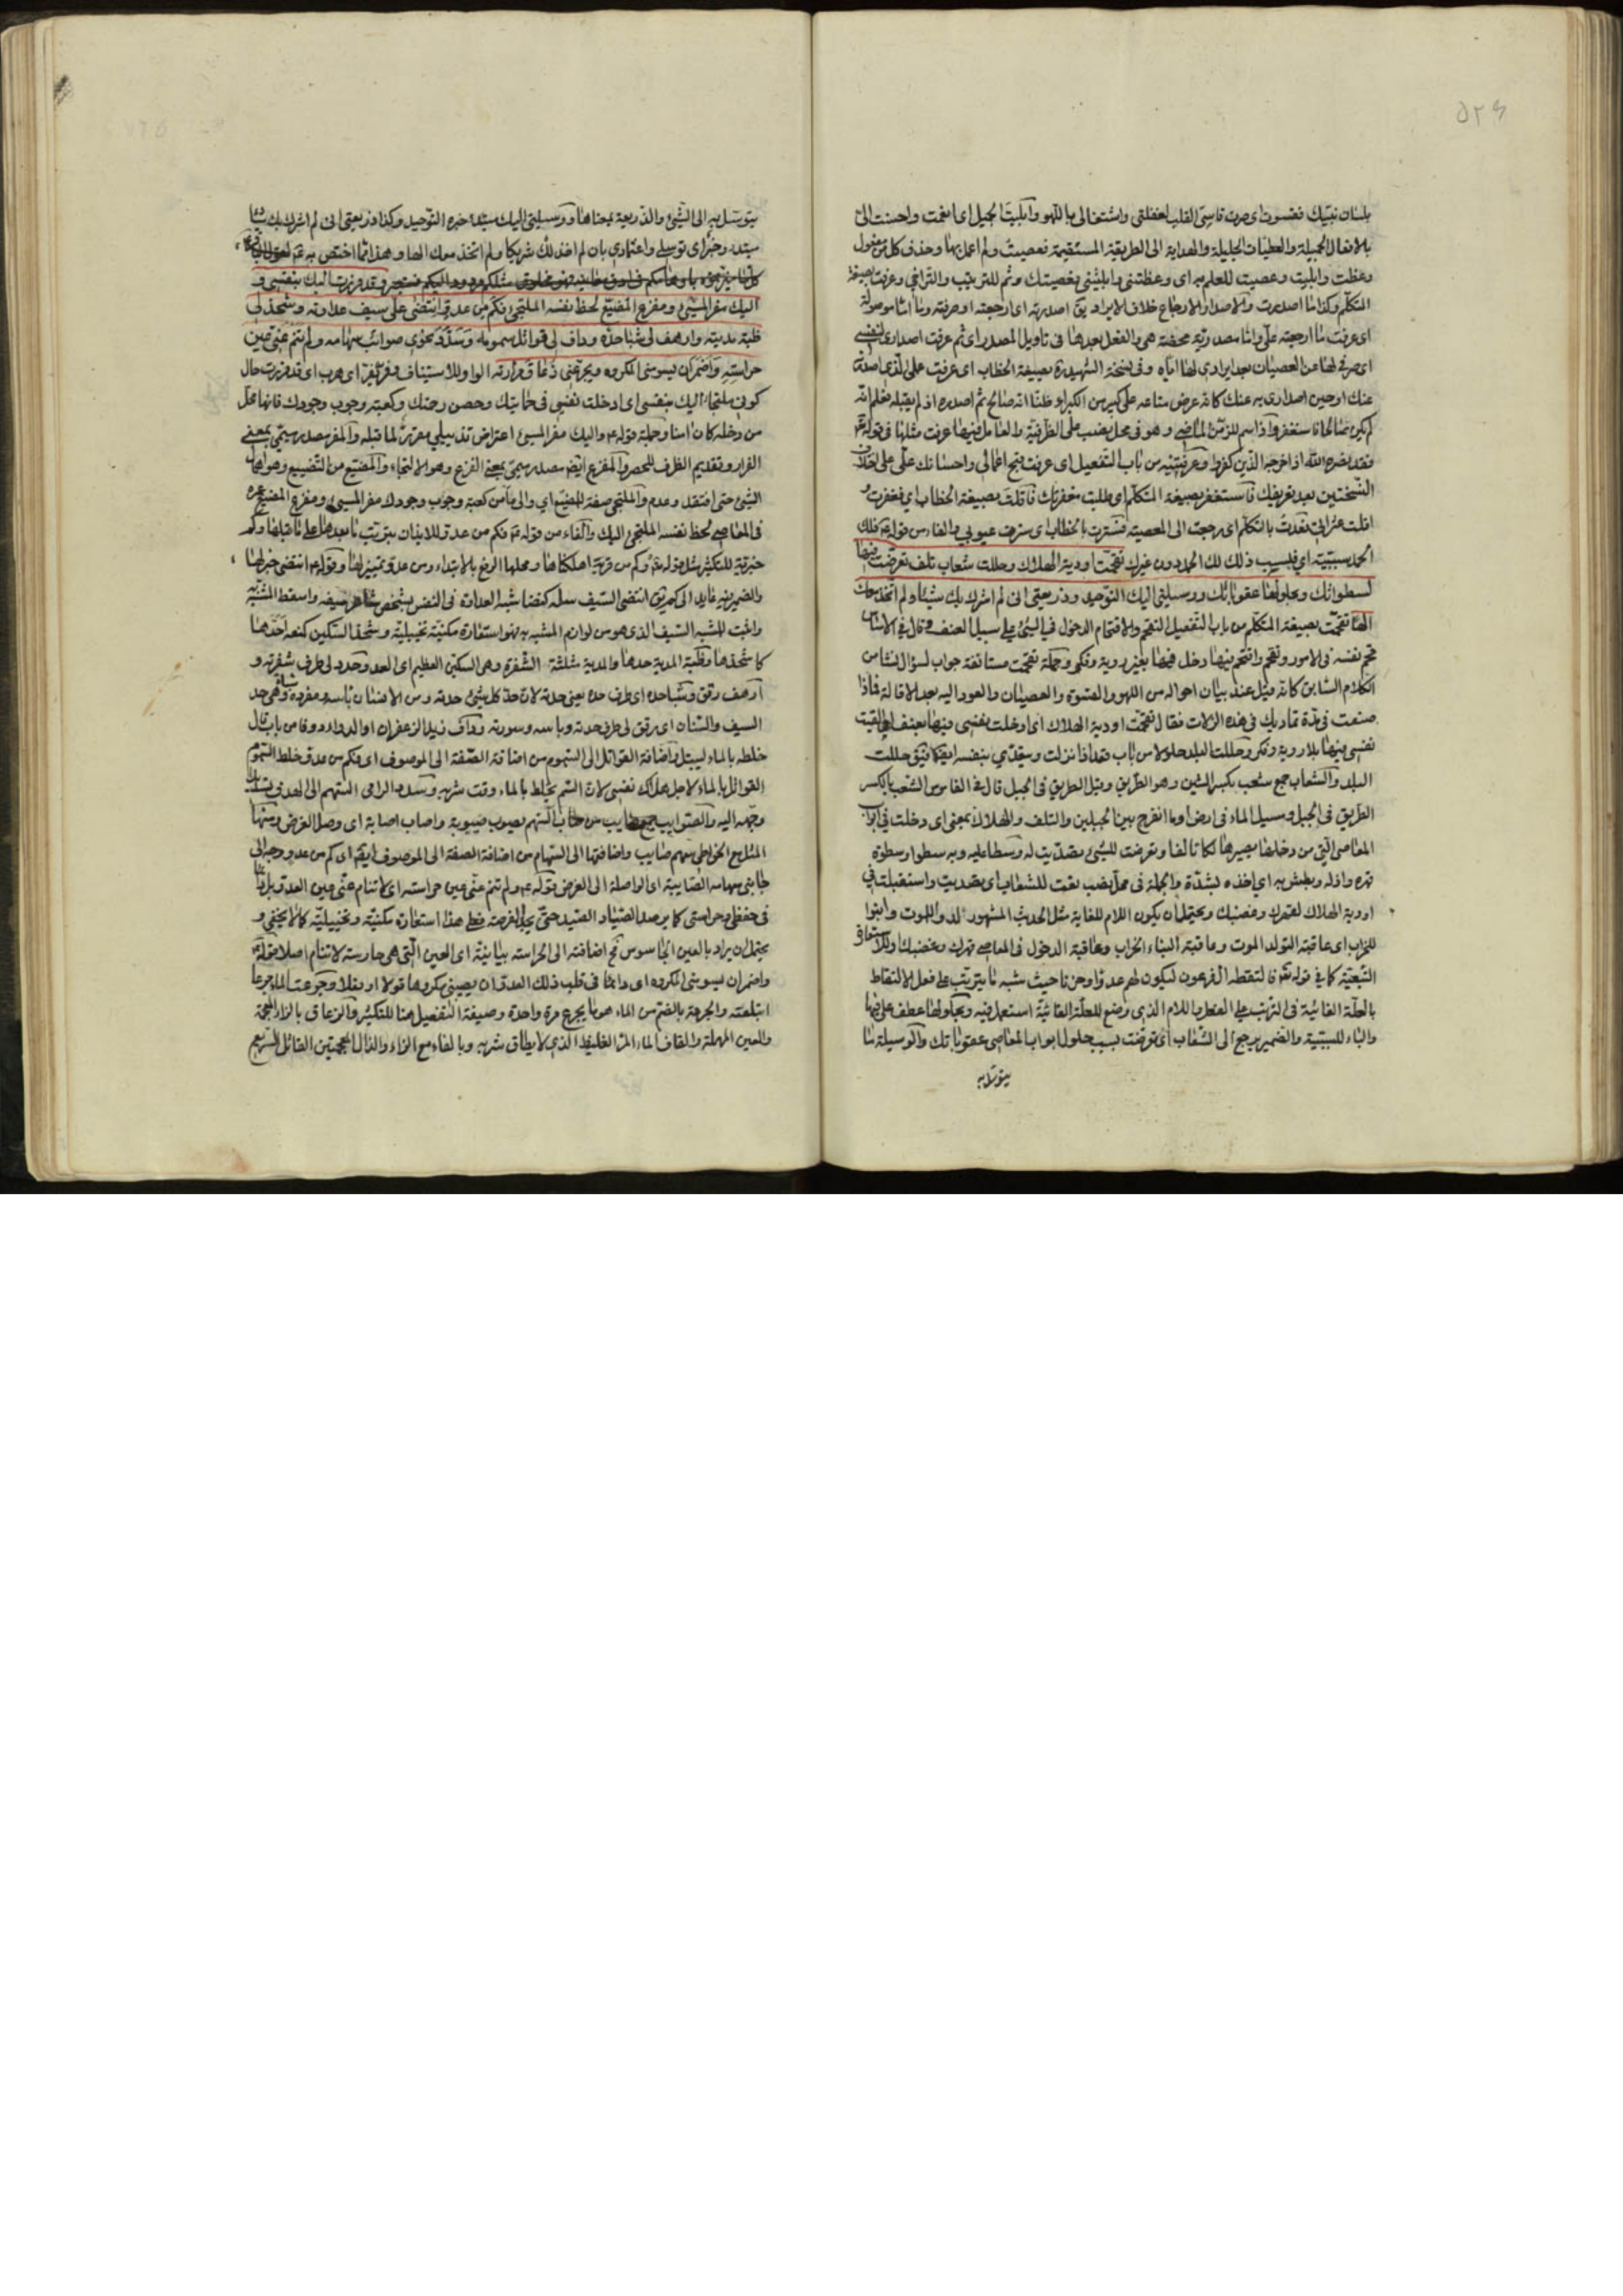 بلسان نبيك فقسوت اى صرت قاسى القلب لغفلتى واشتغالى باللهو وابليت الجميل اى انعمت واحسنت الىّ
بالافعال الجميلة والعطيات الجليلة والهداية الى الطريقة المستقيمة فعصيت ولم اعمل بها وحذف كل من مفعول
وعظت وابليت وعصيت للعلم به اى وعظتنى وابليتنى فعصيتك وثم للترتيب والتراخى وعرفت بصيغة
المتكلم وكذا ما اصدرت والاصدار الارجاع خلاف الايراد يق اصدرته اى ارجعته او صرفته وما اما موصولة
اى عرفت ما ارجعته علىّ واما مصدرية محضة هى والفعل بعدها فى تاويل المصدر اى ثم عرفت اصدارى لنفسى
اى صرفى لها عن العصيان بعد ايرادى لها اياه وفى نسخة الشهيد ره بصيغة الخطاب اى عرفت على الذى اصدرته
عنك اوحين اصدارى به عنك كانه عرض متاعه على كبير من الكبراء ظنا انه صالح ثم اصدره اذ لم يقبله فعلم انه
لم يكن صالحا فاستغفر واذ اسم للزمن الماضى وهو فى محل نصب على الظرفية والعامل فيها عرفت مثلها فى قوله تعالى
فقد نصره الله اذ اخرجه الذين كفروا وعرفتنيه من باب التفعيل اى عرفت قبح اعمالى واحسانك علىّ على اختلاف
النسختين بعد تعريفك فاستغفر بصيغة المتكلم اى طلبت مغفرتك فاقلت بصيغة الخطاب اى فغفرت و
اقلت عثراتى فعدت بالتكلم اى رجعت الى المعصية فسترت بالخطاب اى سترت عيوبى والفاء من قوله ع فلك
الحمد سببية اى فبسبب ذلك لك الحمد دون غيرك تقحمت اودية الهلاك وحللت شعاب تلف تعرضت فيها
لسطواتك وبحلولها عقوباتك ووسيلتى اليك التوحيد وذريعتى انى لم اشرك بك شيئا ولم اتخذ معك
الها تقحمت بصيغة المتكلم من باب التفعيل التقحم والاقتحام الدخول فى الشئ على سبيل العنف وقال فى الاساس
قحم نفسه فى الامور وتقحم واقتحم فيها دخل فيها بغير روية وفكر وجملة تقحمت مستانفة جواب لسؤال نشا من
الكلام السابق كانه قيل عند بيان احواله من اللهو والقسوة والعصيان والعود اليه بعد الاقالة فماذا
صنعت فى مدة تماديك فى هذه الزلات فقال تقحمت اودية الهلاك اى ادخلت نفسى فيها بعنف اى القيت
نفسى فيها بلا روية وفكر وحللت البلد حلولا من باب قعد اذا نزلت ويتعدى بنفسه ايضا فيق حللت
البلد والشعاب جمع شعب بكسر الشين وهو الطريق وقيل الطريق فى الجبل قال فى القاموس الشعب بالكسر
الطريق فى الجبل ومسيل الماء فى ارض او ما انفرج بين الجبلين والتلف والهلاك بمعنى اى دخلت فى ابواب
المعاصى التى من دخلها يصير هالكا تالفا وتعرضت للشئ تصديت له وسطا عليه وبه سطوا وسطوة
قهره واذله وبطش به اى اخذه بشدة والجملة فى محل نصب نعت للشعاب اى تصديت واستقبلت فى
اودية الهلاك لقهرك وغضبك ويحتمل ان يكون اللام للغاية مثل الحديث المشهور لدوا للموت وابنوا
للخراب اى عاقبة التولد الموت وعاقبة البناء الخراب وعاقبة الدخول فى المعاصى قهرك وغضبك وللاستعارة
التبعية كما فى قوله تعالى فالتقطه ال فرعون ليكون لهم عدوا وحزنا حيث شبه ما يترتب على فعل الالتقاط
بالعلة الغائية فى الترتب على الفعل واللام الذى وضع للعلة الغائية استعمل فيه وبحلولها عطف على فيها
والباء للسببية والضمير يرجع الى الشعاب اى تعرضت بسبب حلول ابواب المعاصى عقوباتك والوسيلة ما
يتوسل به
يتوسل به الى الشئ والذريعة بمعناها ووسيلتى اليك مبتدا خبره التوحيد وكذا وذريعتى انى لم اشرك بك شيئا
مبتدا وخبر اى توسلى واعتمادى بان لم اخذ لك شريكا ولم اتخذ معك الها وهذا مما اختص به
وقد فررت اليك بنفسى و
اليك مفر المسئ ومفزع المضيع لحظ نفسه الملتجئ فكم من عدو انتضى علىّ سيف عداوته وشحذ لى
ظبة مديته وارهف لى شبا حده وداف لى قواتل سمومه وسدد نحوى صوائب سهامه ولم تنم عنى عين
حراسته واضمر ان يسومنى المكروه ويجرعنى زعاق مرارته الواو للاستيناف وفر يفر اى هرب اى قد فررت حال
كونى ملتجئا اليك بنفسى اى ادخلت نفسى فى حمايتك وحصن رحمتك وكعبة وجوب وجودك فانها محل
من دخله كان امنا وجملة قوله ع واليك مفر المسئ اعتراض تذييلى مقرر لما قبله والمفر مصدر ميمى بمعنى
الفرار وتقديم الظرف للحصر والمفزع ايضا مصدر ميمى بمعنى الفزع وهو الالتجاء والمضيع من التضييع وهو اهمال
الشئ حتى افتقد وعدم والملتجئ صفة للمضيع اى والى مأمن كعبة وجوب وجودك مفر المسئ ومفزع المضيع عمره
فى المعاصى لحظ نفسه الملتجئ اليك والفاء من قوله ع فكم من عدو للايذان بترتب ما بعدها على ما قبلها وكم
خبرية للتكثير مثل قوله تعالى وكم من قرية اهلكناها ومحلها الرفع بالابتداء ومن عدو تمييز لها وقوله ع انتضى خبرها
والضمير فيه عايد الى كم يق انتضى السيف سله كنضا شبه العداوة فى النفس بشخص شاهر سيفه واسقط المشبه به
واثبت للمشبه السيف الذى هو من لوازم المشبه به فهو استعارة مكنية تخييلية وشحذ السكين كمنع احدها
كاشحذها وظبة المدية حدها والمدية مثلثة الشفرة وهى السكين العظيم اى العدو حدد لى طرف شفرته و
ارهف رقق وشبا حده اى طرف حده يعنى حدته لان حد كل شئ حدته ومن الانسان باسه ومفرده شباة وهى حد
السيف والسنان اى رقق لى طرف حدته وباسه وسورته وداف زيد الزعفران او الدواء دوفا من باب قال
خلطه بالماء ليبتل واضافة القواتل الى السموم من اضافة الصفة الى الموصوف اى فكم من عدو خلط السموم
القواتل بالماء لاجل هلاك نفسى لان السم يخلط بالماء وقت شربه وسدد الرامى السهم الى الهدف تسديدا
وجهه اليه والصوايب جمع صايب من صاب السهم يصوب صيبوبة واصاب اصابة اى وصل الغرض ومنها
المثل مع الخواطى سهم صايب واضافتها الى السهام من اضافة الصفة الى الموصوف ايضا اى كم من عدو وجه الى
جانبى سهامه الصايبة اى الواصلة الى الغرض وقوله ع ولم تنم عنى عين حراسته اى لا تنام عنى عين العدو بل
فى حفظى وحراستى كما يرصد الصياد الصيد حتى يجد الفرصة فعلى هذا استعارة مكنية وتخييلية كما لا يخفى و
يحتمل ان يراد بالعين الجاسوس فح اضافته الى الحراسة بيانية اى العين التى هى حارسته لا تنام اصلا وقوله ع
واضمر ان يسومنى المكروه اى دائما فى قلب ذلك العدو ان يصيبنى مكروها قولا او فعلا وجرعت الماء جرعا
ابتلعته والجرعة بالضم من الماء هو ما يجرع مرة واحدة وصيغة التفعيل هنا للتكثير والزعاق بالزاء المعجمة
والعين المهملة والقاف الماء المر الغليظ الذى لا يطاق شربه وبالفاء مع الزاء والذال المعجمتين القاتل السريع